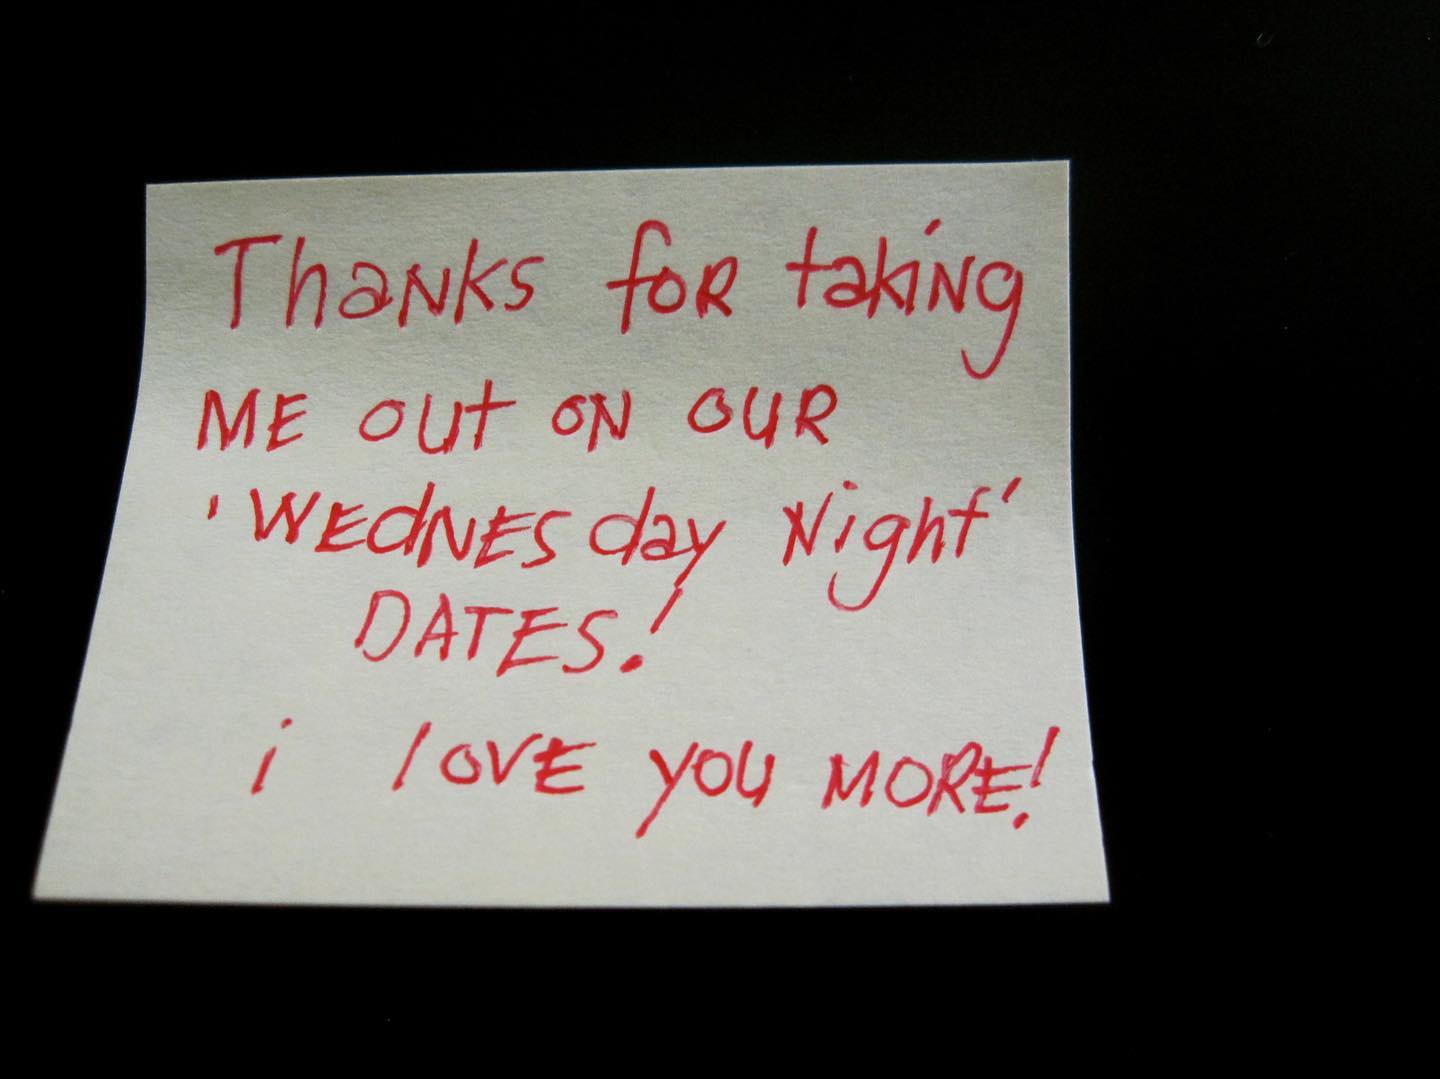 Thanks for taking
ME out ON OUR
'WEdNESday Night'
DATES!
i lovE you MORE!